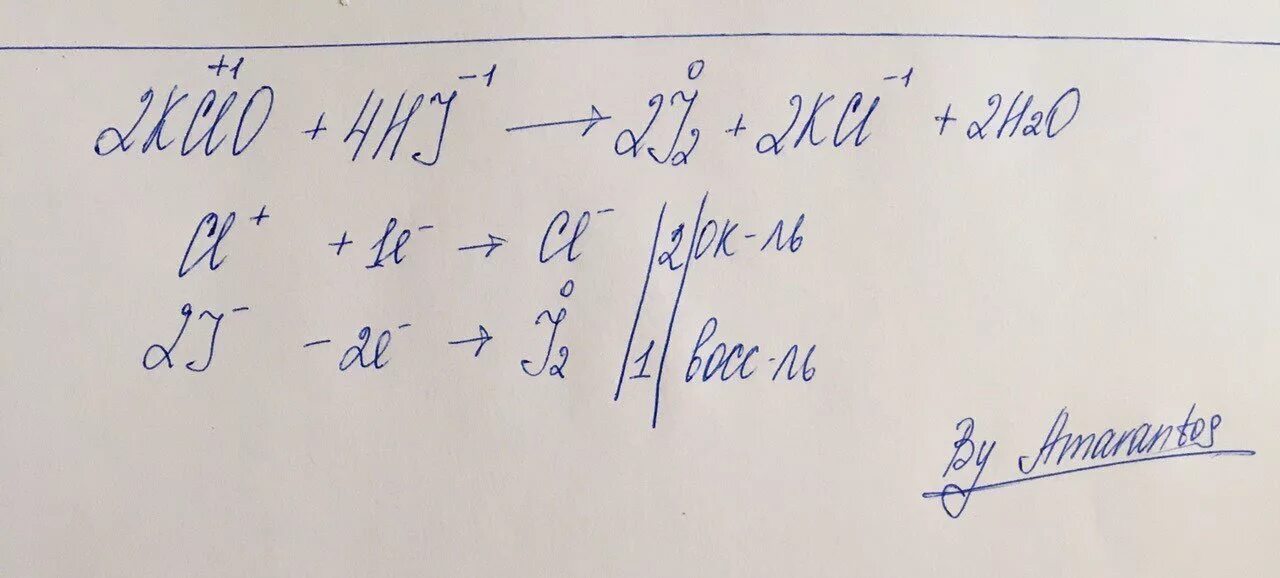 2KCl⁺¹O + 4HJ⁻¹ → 2J₂⁰ + 2KCl⁻¹ + 2H₂O
Cl⁺ + 1e⁻ → Cl⁻ |2| ок-ль
2J⁻ - 2e⁻ → J₂⁰ |1| восс-ль
By Amarantos